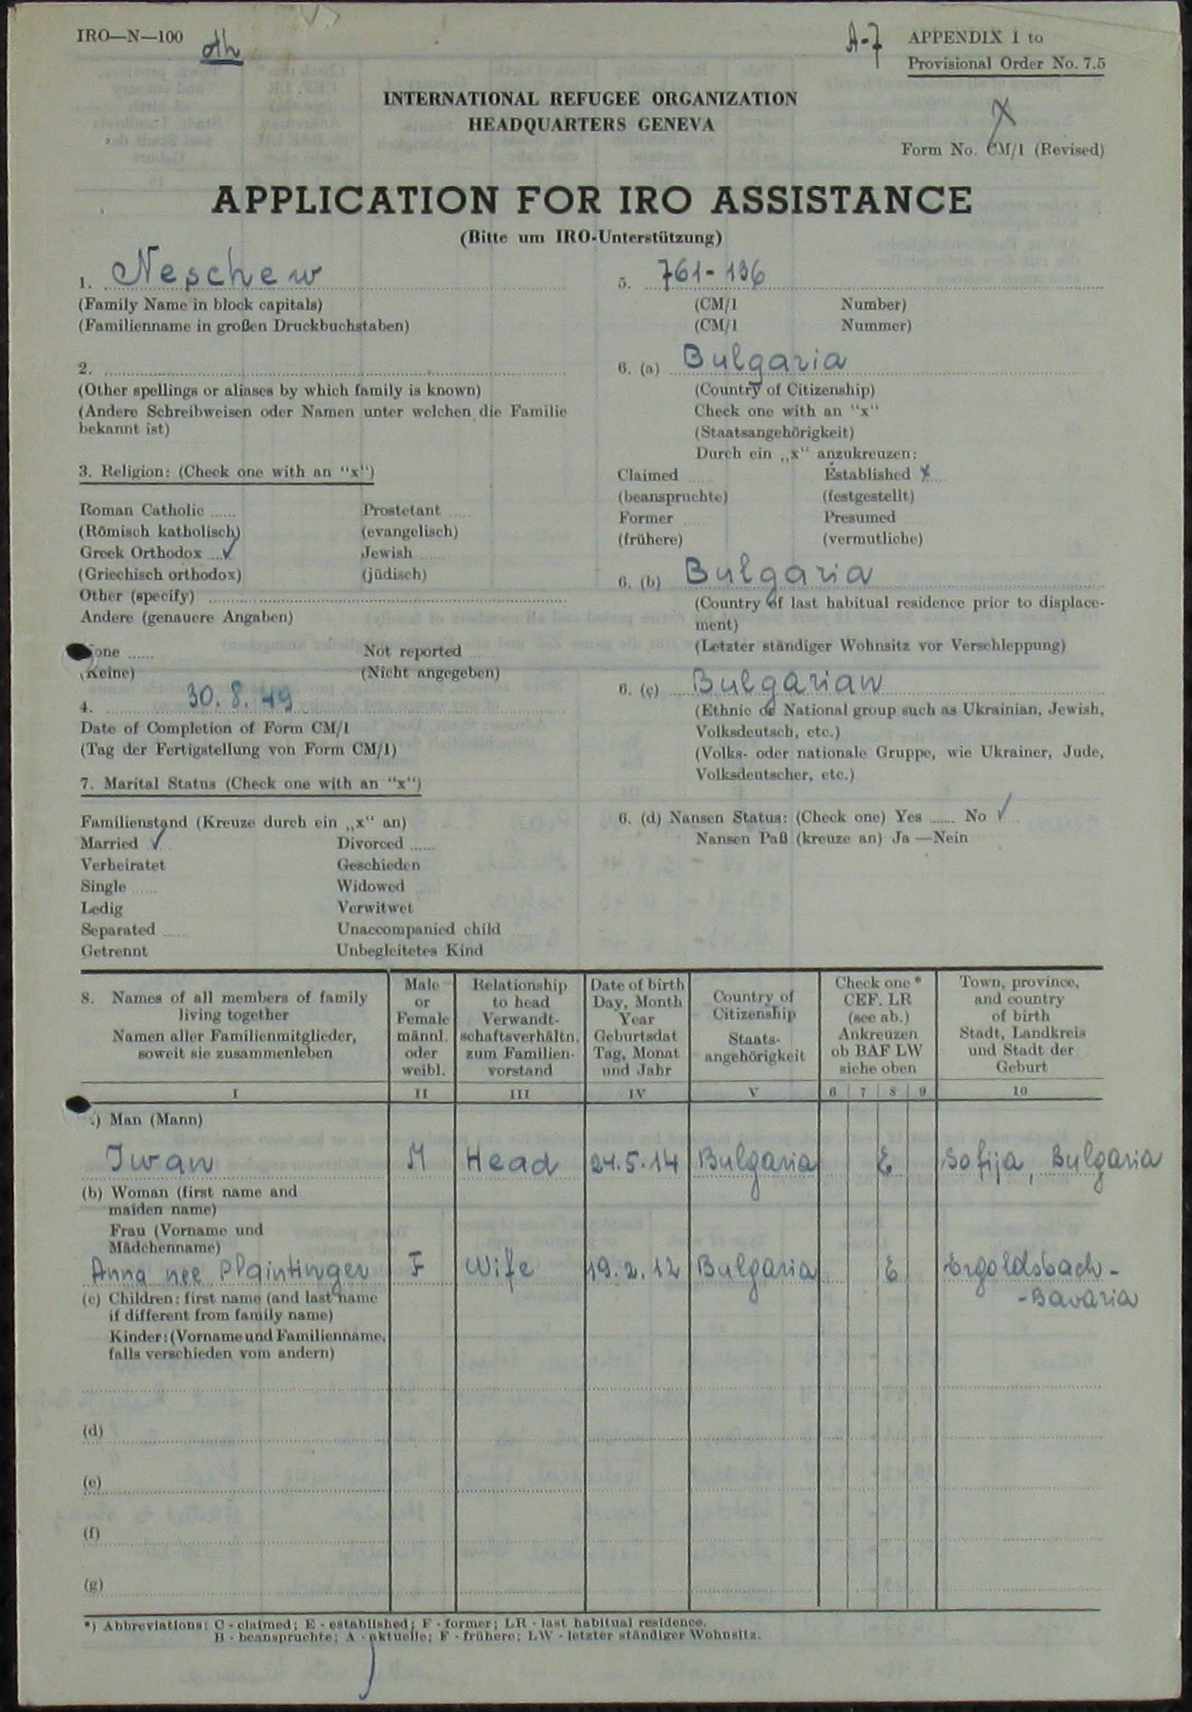 IRO—N—100
A-7
APPENDIX 1 to
Provisional Order No. 7.5
INTERNATIONAL REFUGEE ORGANIZATION
HEADQUARTERS GENEVA
Form No. CM/1 (Revised)
APPLICATION FOR IRO ASSISTANCE
(Bitte um IRO-Unterstützung)
1. Neschew
(Family Name in block capitals)
(Familienname in großen Druckbuchstaben)
2.
(Other spellings or aliases by which family is known)
(Andere Schreibweisen oder Namen unter welchen die Familie
bekannt ist)
3. Religion: (Check one with an "x")
Roman Catholic ...... Prostetant
(Römisch katholisch) (evangelisch)
Greek Orthodox ...✓ Jewish
(Griechisch orthodox) (jüdisch)
Other (specify)
Andere (genauere Angaben)
one ...... Not reported
(Keine) (Nicht angegeben)
4. 30. 8. 49
Date of Completion of Form CM/1
(Tag der Fertigstellung von Form CM/1)
7. Marital Status (Check one with an "x")
Familienstand (Kreuze durch ein „x" an)
Married ✓ Divorced ......
Verheiratet Geschieden
Single ...... Widowed
Ledig Verwitwet
Separated ...... Unaccompanied child
Getrennt Unbegleitetes Kind
5. 761-136
(CM/1 Number)
(CM/1 Nummer)
6. (a) Bulgaria
(Country of Citizenship)
Check one with an "x"
(Staatsangehörigkeit)
Durch ein „x" anzukreuzen:
Claimed ...... Established x
(beanspruchte) (festgestellt)
Former ...... Presumed
(frühere) (vermutliche)
6. (b) Bulgaria
(Country of last habitual residence prior to displace-
ment)
(Letzter ständiger Wohnsitz vor Verschleppung)
6. (c) Bulgarian
(Ethnic or National group such as Ukrainian, Jewish,
Volksdeutsch, etc.)
(Volks- oder nationale Gruppe, wie Ukrainer, Jude,
Volksdeutscher, etc.)
6. (d) Nansen Status: (Check one) Yes ...... No ✓
Nansen Paß (kreuze an) Ja —Nein
8. Names of all members of family
living together
Namen aller Familienmitglieder,
soweit sie zusammenleben
Male
or
Female
männl.
oder
weibl.
Relationship
to head
Verwandt-
schaftsverhältn.
zum Familien-
vorstand
Date of birth
Day, Month
Year
Geburtsdat
Tag, Monat
und Jahr
Country of
Citizenship
Staats-
angehörigkeit
Check one *
CEF. LR
(see ab.)
Ankreuzen
ob BAF LW
siehe oben
Town, province,
and country
of birth
Stadt, Landkreis
und Stadt der
Geburt
I II III IV V 6 7 8 9 10
.) Man (Mann)
Iwan M Head 24.5.14 Bulgaria E Sofija, Bulgaria
(b) Woman (first name and
maiden name)
Frau (Vorname und
Mädchenname)
Anna nee Plaintinger F Wife 19.2.12 Bulgaria E Ergoldsbach-
-Bavaria
(c) Children: first name (and last name
if different from family name)
Kinder: (Vorname und Familienname,
falls verschieden vom andern)
(d)
(e)
(f)
(g)
*) Abbreviations: C - claimed; E - established; F - former; LR - last habitual residence.
B - beanspruchte; A - aktuelle; F - frühere; LW - letzter ständiger Wohnsitz.